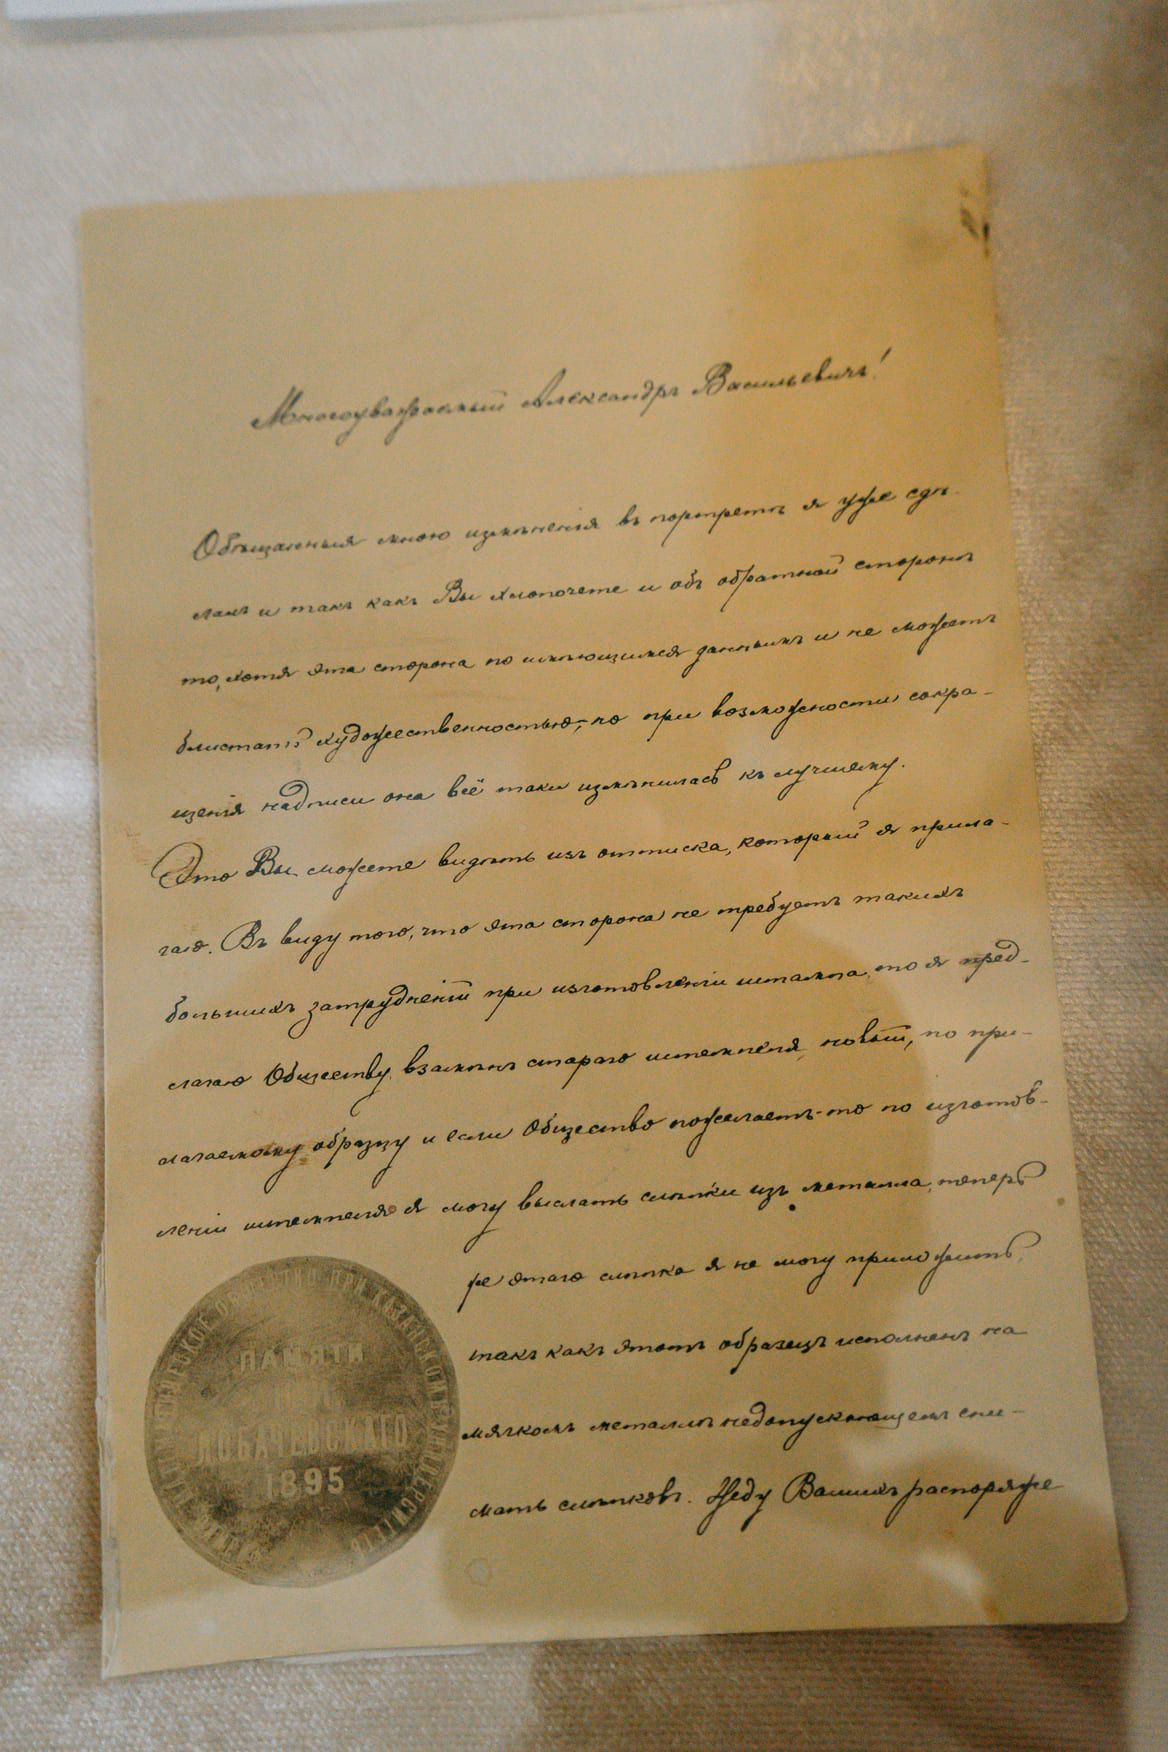 Многоуважаемый Александръ Васильевичъ!
Обѣщанныя мною измѣненія въ портретѣ я уже сдѣ-
лалъ и такъ какъ Вы хлопочете и объ обратной сторонѣ
то, хотя эта сторона по имѣющимся даннымъ и не можетъ
блистать художественностью, но при возможности сокра-
щенія надписи она всё таки измѣнилась къ лучшему.
Это Вы можете видѣть изъ оттиска, который я прила-
гаю. Въ виду того, что эта сторона не требуетъ такихъ
большихъ затрудненій при изготовленіи штампа, то я пред-
лагаю Обществу, взамѣнъ стараго штемпеля, новый, по при-
лагаемому образцу и если Общество пожелаетъ-то по изготов-
леніи штемпеля я могу выслать слѣпки изъ металла, теперь
же этаго слѣпка я не могу приложить,
такъ какъ этотъ образецъ исполненъ на
мягкомъ металлѣ недопускающемъ сни-
мать слѣпковъ. Жду Вашихъ распоряже
ФИЗИКО-МАТЕМАТИЧЕСКОЕ ОБЩЕСТВО ПРИ КАЗАНСКОМЪ УНИВЕРСИТЕТѢ
ПАМЯТИ
ЛОБАЧЕВСКАГО
1895